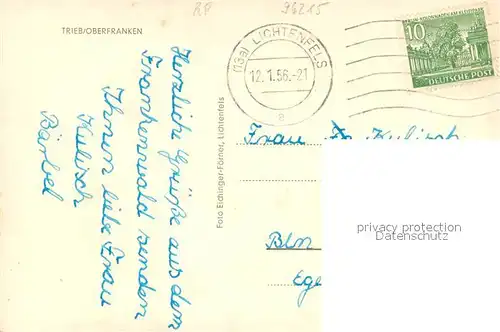 RF 96215
TRIEB/OBERFRANKEN
(13a) LICHTENFELS
12.1.56.-21
a
10
DEUTSCHE POST
Herzliche Grüße aus dem
Frankenwald senden
Ihnen liebe Frau
Kulisch
Bärbel
Foto Eichinger-Förner, Lichtenfels
Frau Kulisch
Bln
Ege
privacy protection
Datenschutz